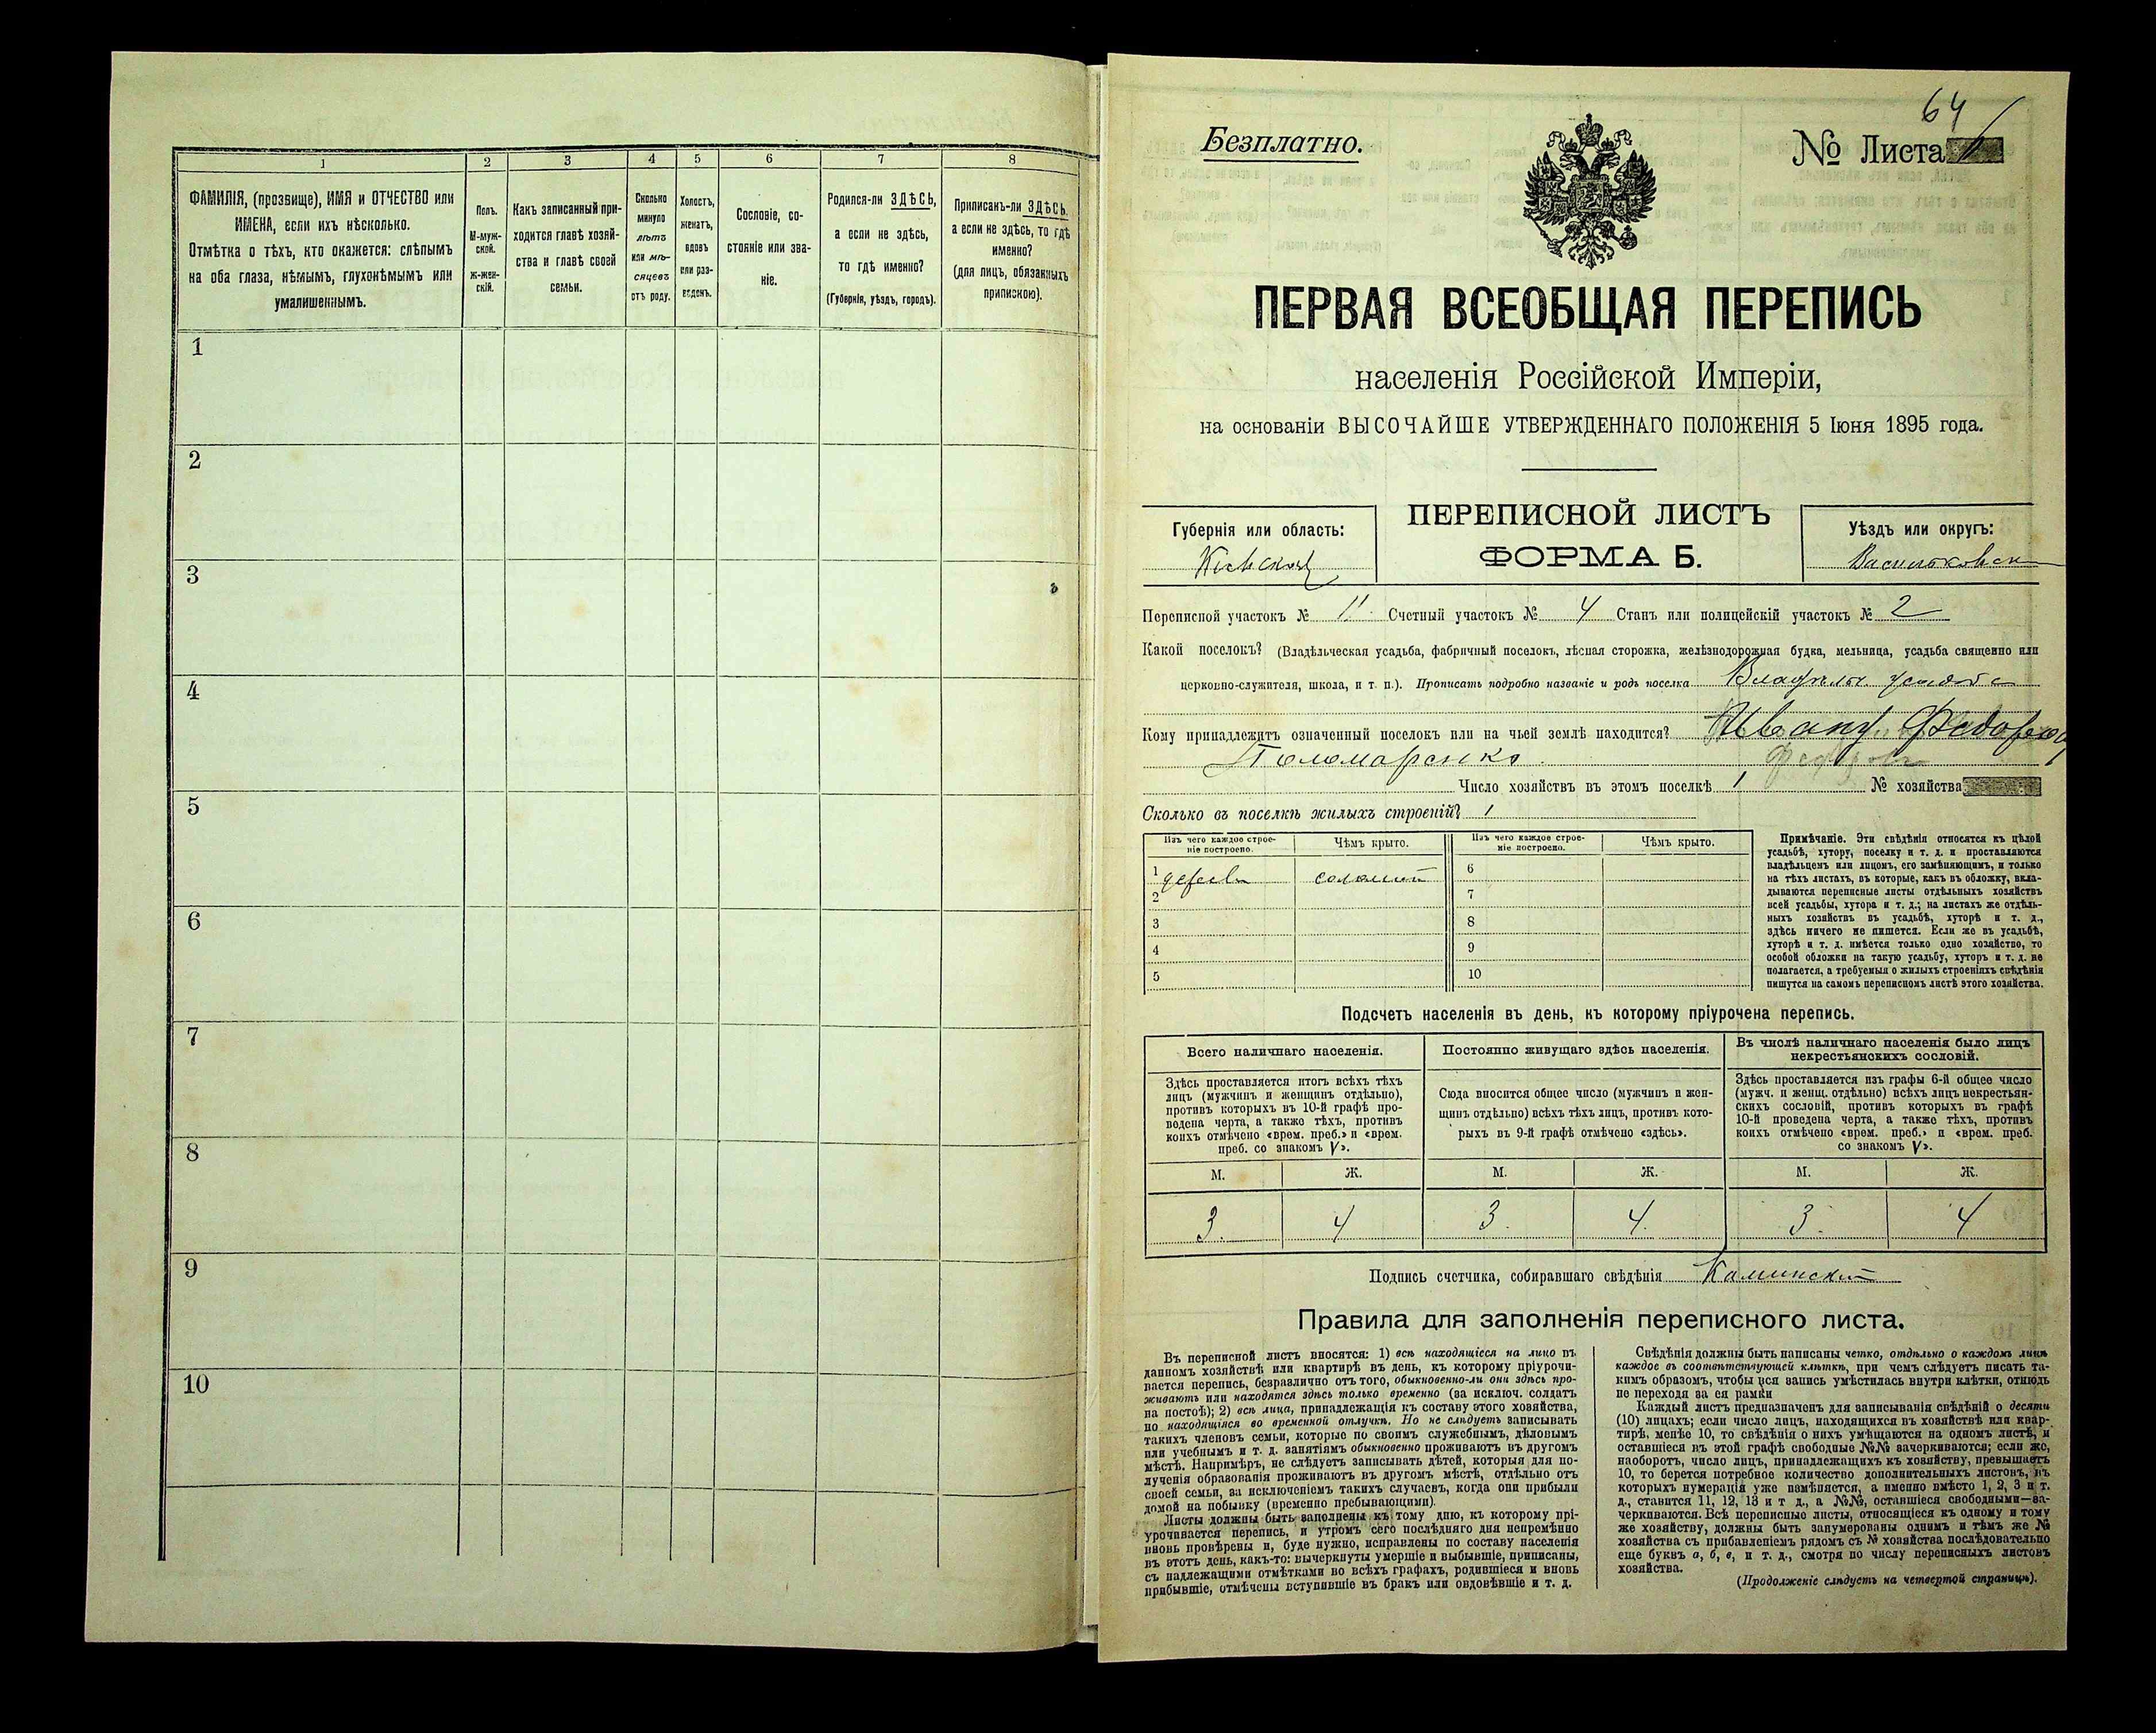 1 2 3 4 5 6 7 8
ФАМИЛІЯ, (прозвище), ИМЯ и ОТЧЕСТВО или
ИМЕНА, если ихъ нѣсколько.
Отмѣтка о тѣхъ, кто окажется: слѣпымъ
на оба глаза, нѣмымъ, глухонѣмымъ или
умалишеннымъ.
Полъ.
М-муж-
ской.
Ж-жен-
скій.
Какъ записанный при-
ходится главѣ хозяй-
ства и главѣ своей
семьи.
Сколько
минуло
лѣтъ
или мѣ-
сяцевъ
отъ роду.
Холостъ,
женатъ,
вдовъ
или раз-
веденъ.
Сословіе, со-
стояніе или зва-
ніе.
Родился-ли ЗДѢСЬ,
а если не здѣсь,
то гдѣ именно?
(Губернія, уѣздъ, городъ).
Приписанъ-ли ЗДѢСЬ,
а если не здѣсь, то гдѣ
именно?
(для лицъ, обязанныхъ
припискою).
1
2
3
4
5
6
7
8
9
10
64
Безплатно.
№ Листа
ПЕРВАЯ ВСЕОБЩАЯ ПЕРЕПИСЬ
населенія Россійской Имперіи,
на основаніи ВЫСОЧАЙШЕ УТВЕРЖДЕННАГО ПОЛОЖЕНІЯ 5 Іюня 1895 года.
Губернія или область:
Кіевская
ПЕРЕПИСНОЙ ЛИСТЪ
ФОРМА Б.
Уѣздъ или округъ:
Васильковск
Переписной участокъ № 11 Счетный участокъ № 4 Станъ или полицейскій участокъ № 2
Какой поселокъ? (Владѣльческая усадьба, фабричный поселокъ, лѣсная сторожка, желѣзнодорожная будка, мельница, усадьба священно или
церковно-служителя, школа, и т. п.). Прописать подробно названіе и родъ поселка Владѣльч. усадьба
Кому принадлежитъ означенный поселокъ или на чьей землѣ находится? Ивану Федорову
Пономаренко
Число хозяйствъ въ этомъ поселкѣ 1 № хозяйства
Сколько въ поселкѣ жилыхъ строеній? 1
Изъ чего каждое строе-
ніе построено.
Чѣмъ крыто.
Изъ чего каждое строе-
ніе построено.
Чѣмъ крыто.
1 дерев. солом. 6
2 7
3 8
4 9
5 10
Примѣчаніе. Эти свѣдѣнія относятся къ цѣлой
усадьбѣ, хутору, поселку и т. д. и проставляются
владѣльцемъ или лицомъ, его замѣняющимъ, и только
на тѣхъ листахъ, въ которые, какъ въ обложку, вкла-
дываются переписные листы отдѣльныхъ хозяйствъ
всей усадьбы, хутора и т. д.; на листахъ же отдѣль-
ныхъ хозяйствъ въ усадьбѣ, хуторѣ и т. д.,
здѣсь ничего не пишется. Если же въ усадьбѣ,
хуторѣ и т. д. имѣется только одно хозяйство, то
особой обложки на такую усадьбу, хуторъ и т. д. не
полагается, а требуемыя о жилыхъ строеніяхъ свѣдѣнія
пишутся на самомъ переписномъ листѣ этого хозяйства.
Подсчетъ населенія въ день, къ которому пріурочена перепись.
Всего наличнаго населенія.
Здѣсь проставляется итогъ всѣхъ тѣхъ
лицъ (мужчинъ и женщинъ отдѣльно),
противъ которыхъ въ 10-й графѣ про-
ведена черта, а также тѣхъ, противъ
коихъ отмѣчено «врем. преб.» и «врем.
преб. со знакомъ V».
Постоянно живущаго здѣсь населенія.
Сюда вносится общее число (мужчинъ и жен-
щинъ отдѣльно) всѣхъ тѣхъ лицъ, противъ кото-
рыхъ въ 9-й графѣ отмѣчено «здѣсь».
Въ числѣ наличнаго населенія было лицъ
некрестьянскихъ сословій.
Здѣсь проставляется изъ графы 6-й общее число
(мужч. и женщ. отдѣльно) всѣхъ лицъ некрестьян-
скихъ сословій, противъ которыхъ въ графѣ
10-й проведена черта, а также тѣхъ, противъ
коихъ отмѣчено «врем. преб.» и «врем. преб.
со знакомъ V».
М. Ж. М. Ж. М. Ж.
3. 4 3. 4. 3. 4
Подпись счетчика, собиравшаго свѣдѣнія Каминскій
Правила для заполненія переписного листа.
Въ переписной листъ вносятся: 1) всѣ находящіеся на лицо въ
данномъ хозяйствѣ или квартирѣ въ день, къ которому пріурочи-
вается перепись, безразлично отъ того, обыкновенно-ли они здѣсь про-
живаютъ или находятся здѣсь только временно (за исключ. солдатъ
на постоѣ); 2) всѣ лица, принадлежащія къ составу этого хозяйства,
но находящіяся во временной отлучкѣ. Но не слѣдуетъ записывать
такихъ членовъ семьи, которые по своимъ служебнымъ, дѣловымъ
или учебнымъ и т. д. занятіямъ обыкновенно проживаютъ въ другомъ
мѣстѣ. Напримѣръ, не слѣдуетъ записывать дѣтей, которыя для по-
лученія образованія проживаютъ въ другомъ мѣстѣ, отдѣльно отъ
своей семьи, за исключеніемъ такихъ случаевъ, когда они прибыли
домой на побывку (временно пребывающими).
Листы должны быть заполнены къ тому дню, къ которому прі-
урочивается перепись, и утромъ сего послѣдняго дня непремѣнно
вновь провѣрены и, буде нужно, исправлены по составу населенія
въ этотъ день, какъ-то: вычеркнуты умершіе и выбывшіе, приписаны,
съ надлежащими отмѣтками во всѣхъ графахъ, родившіеся и вновь
прибывшіе, отмѣчены вступившіе въ бракъ или овдовѣвшіе и т. д.
Свѣдѣнія должны быть написаны четко, отдѣльно о каждомъ лицѣ
каждое въ соотвѣтствующей клѣткѣ, при чемъ слѣдуетъ писать та-
кимъ образомъ, чтобы вся запись умѣстилась внутри клѣтки, отнюдь
не переходя за ея рамки
Каждый листъ предназначенъ для записыванія свѣдѣній о десяти
(10) лицахъ; если число лицъ, находящихся въ хозяйствѣ или квар-
тирѣ, менѣе 10, то свѣдѣнія о нихъ умѣщаются на одномъ листѣ, и
оставшіеся въ этой графѣ свободные №№ зачеркиваются; если же,
наоборотъ, число лицъ, принадлежащихъ къ хозяйству, превышаетъ
10, то берется потребное количество дополнительныхъ листовъ, въ
которыхъ нумерація уже измѣняется, а именно вмѣсто 1, 2, 3 и т.
д., ставится 11, 12, 13 и т д., а №№, оставшіеся свободными—за-
черкиваются. Всѣ переписные листы, относящіеся къ одному и тому
же хозяйству, должны быть занумерованы однимъ и тѣмъ же №
хозяйства съ прибавленіемъ рядомъ съ № хозяйства послѣдовательно
еще буквъ а, б, в, и т. д., смотря по числу переписныхъ листовъ
хозяйства.
(Продолженіе слѣдуетъ на четвертой страницѣ).